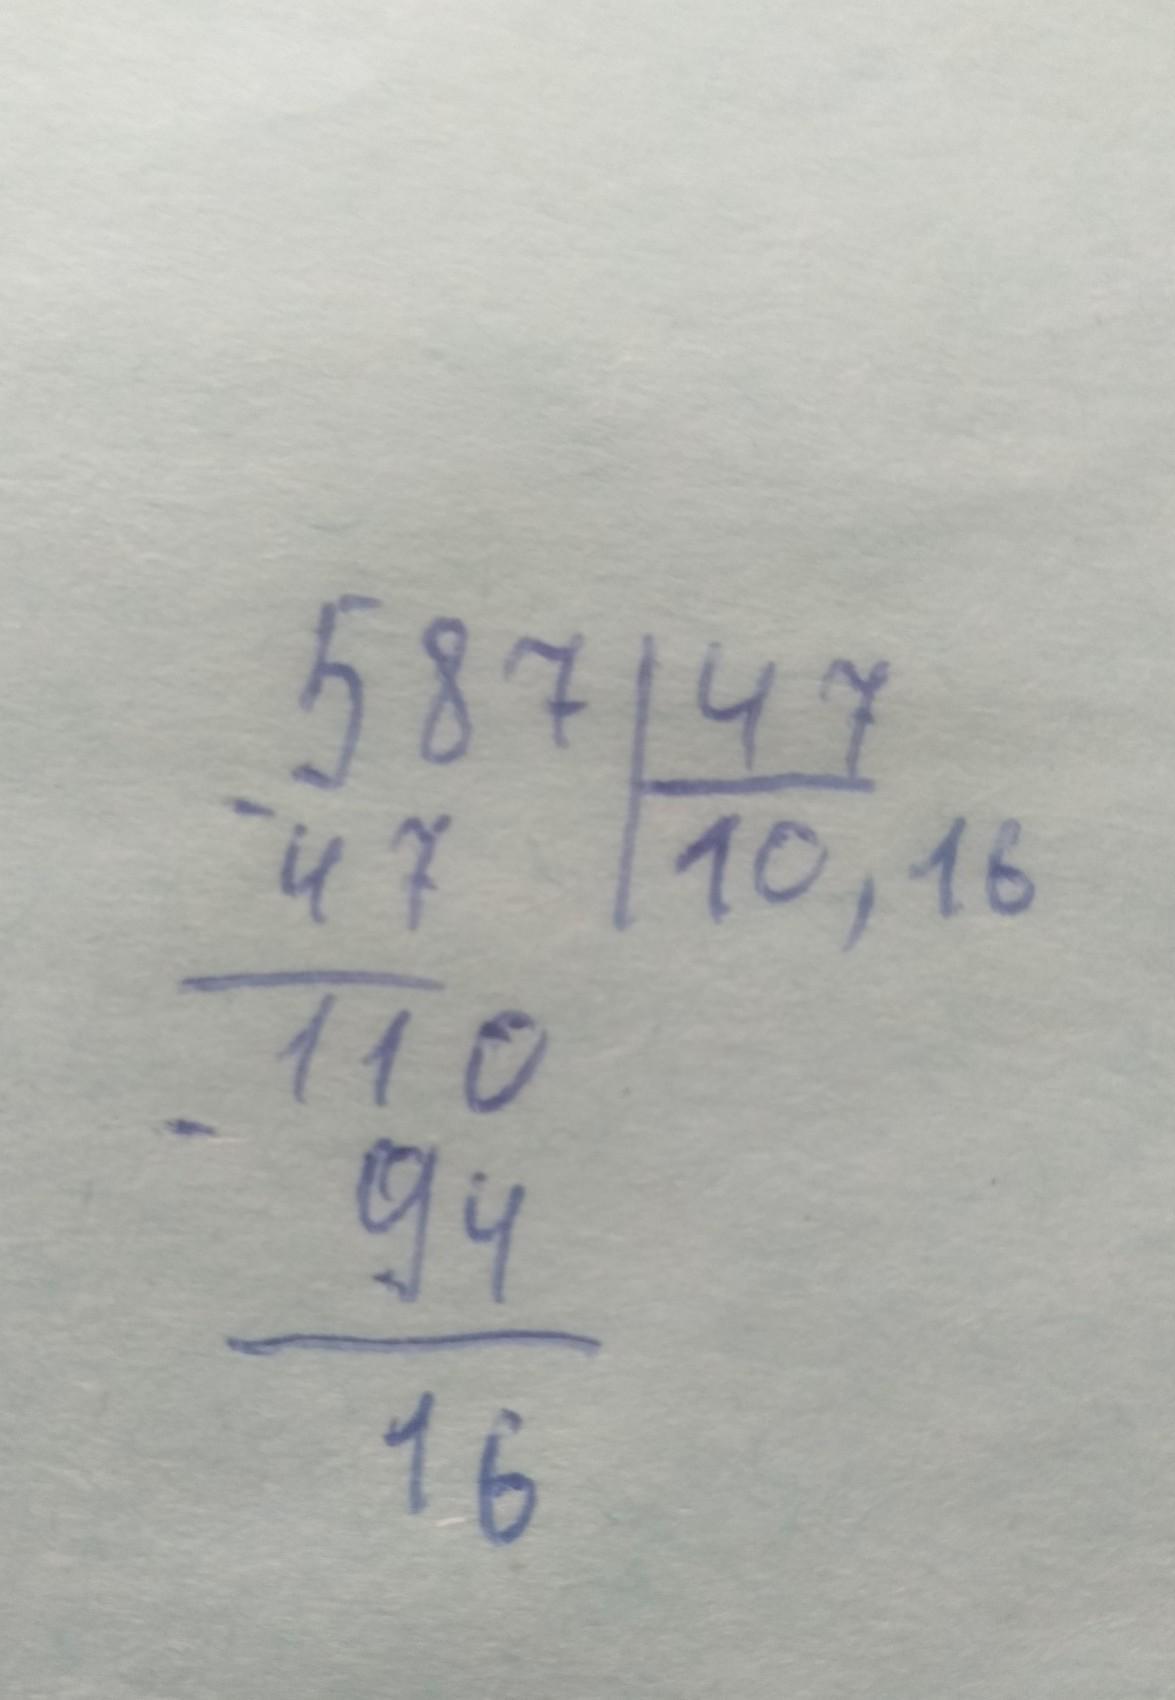 587 | 47
- 47 | 10,16
110
- 94
16